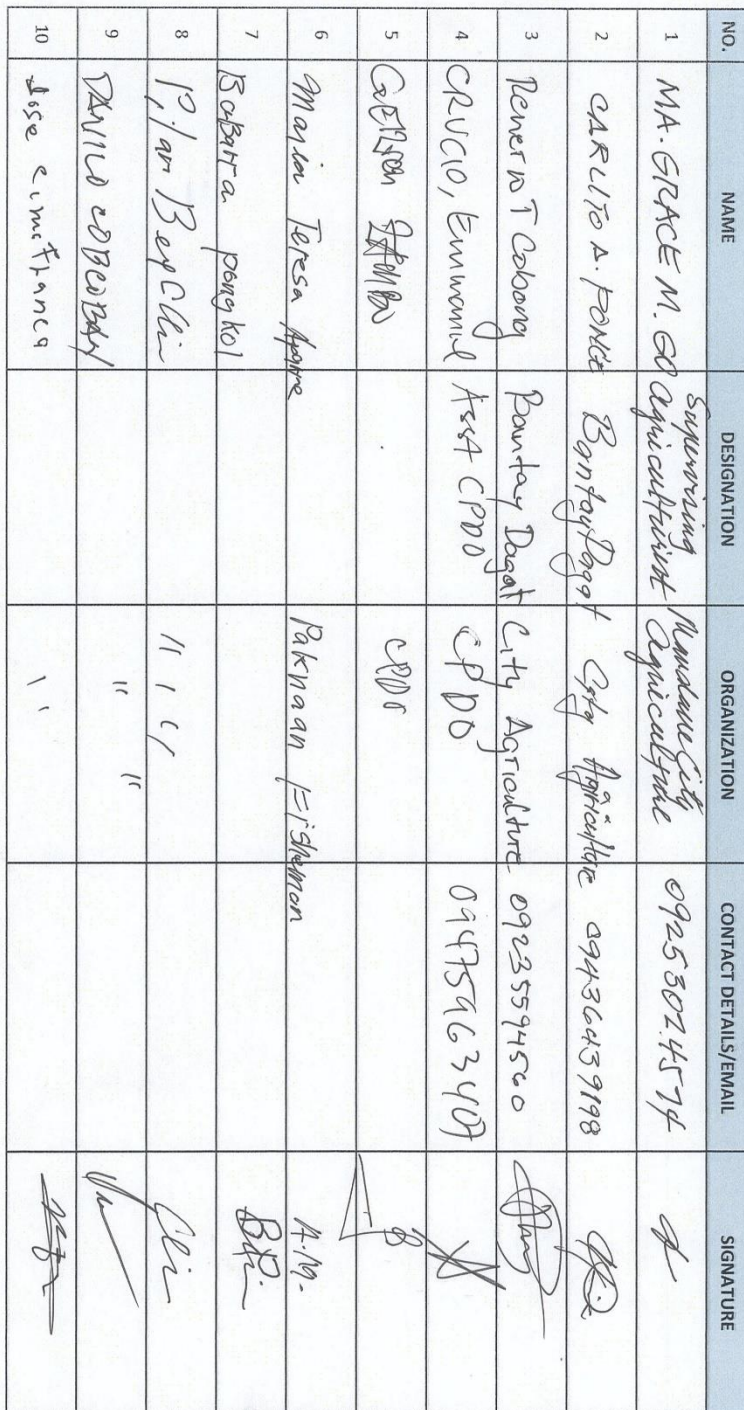 NO. NAME DESIGNATION ORGANIZATION CONTACT DETAILS/EMAIL SIGNATURE
1 MA. GRACE M. GO Supervising Agriculturist Mandaue City Agriculture 09253024574
2 CARLITO A. PONCE Bantay Dagat City Agriculture 09436439198
3 T Cobong Bantay Dagat City Agriculture 09235594560
4 CRUCIO, Emmanuel Asst CPDO CPDO 09475963407
5 CPDO
6 Maria Teresa Paknaan Fisherman A.M.
7 Babara pongkol
8 Pilar " "
9 DANILO COBCOBAN " "
10 Jose "